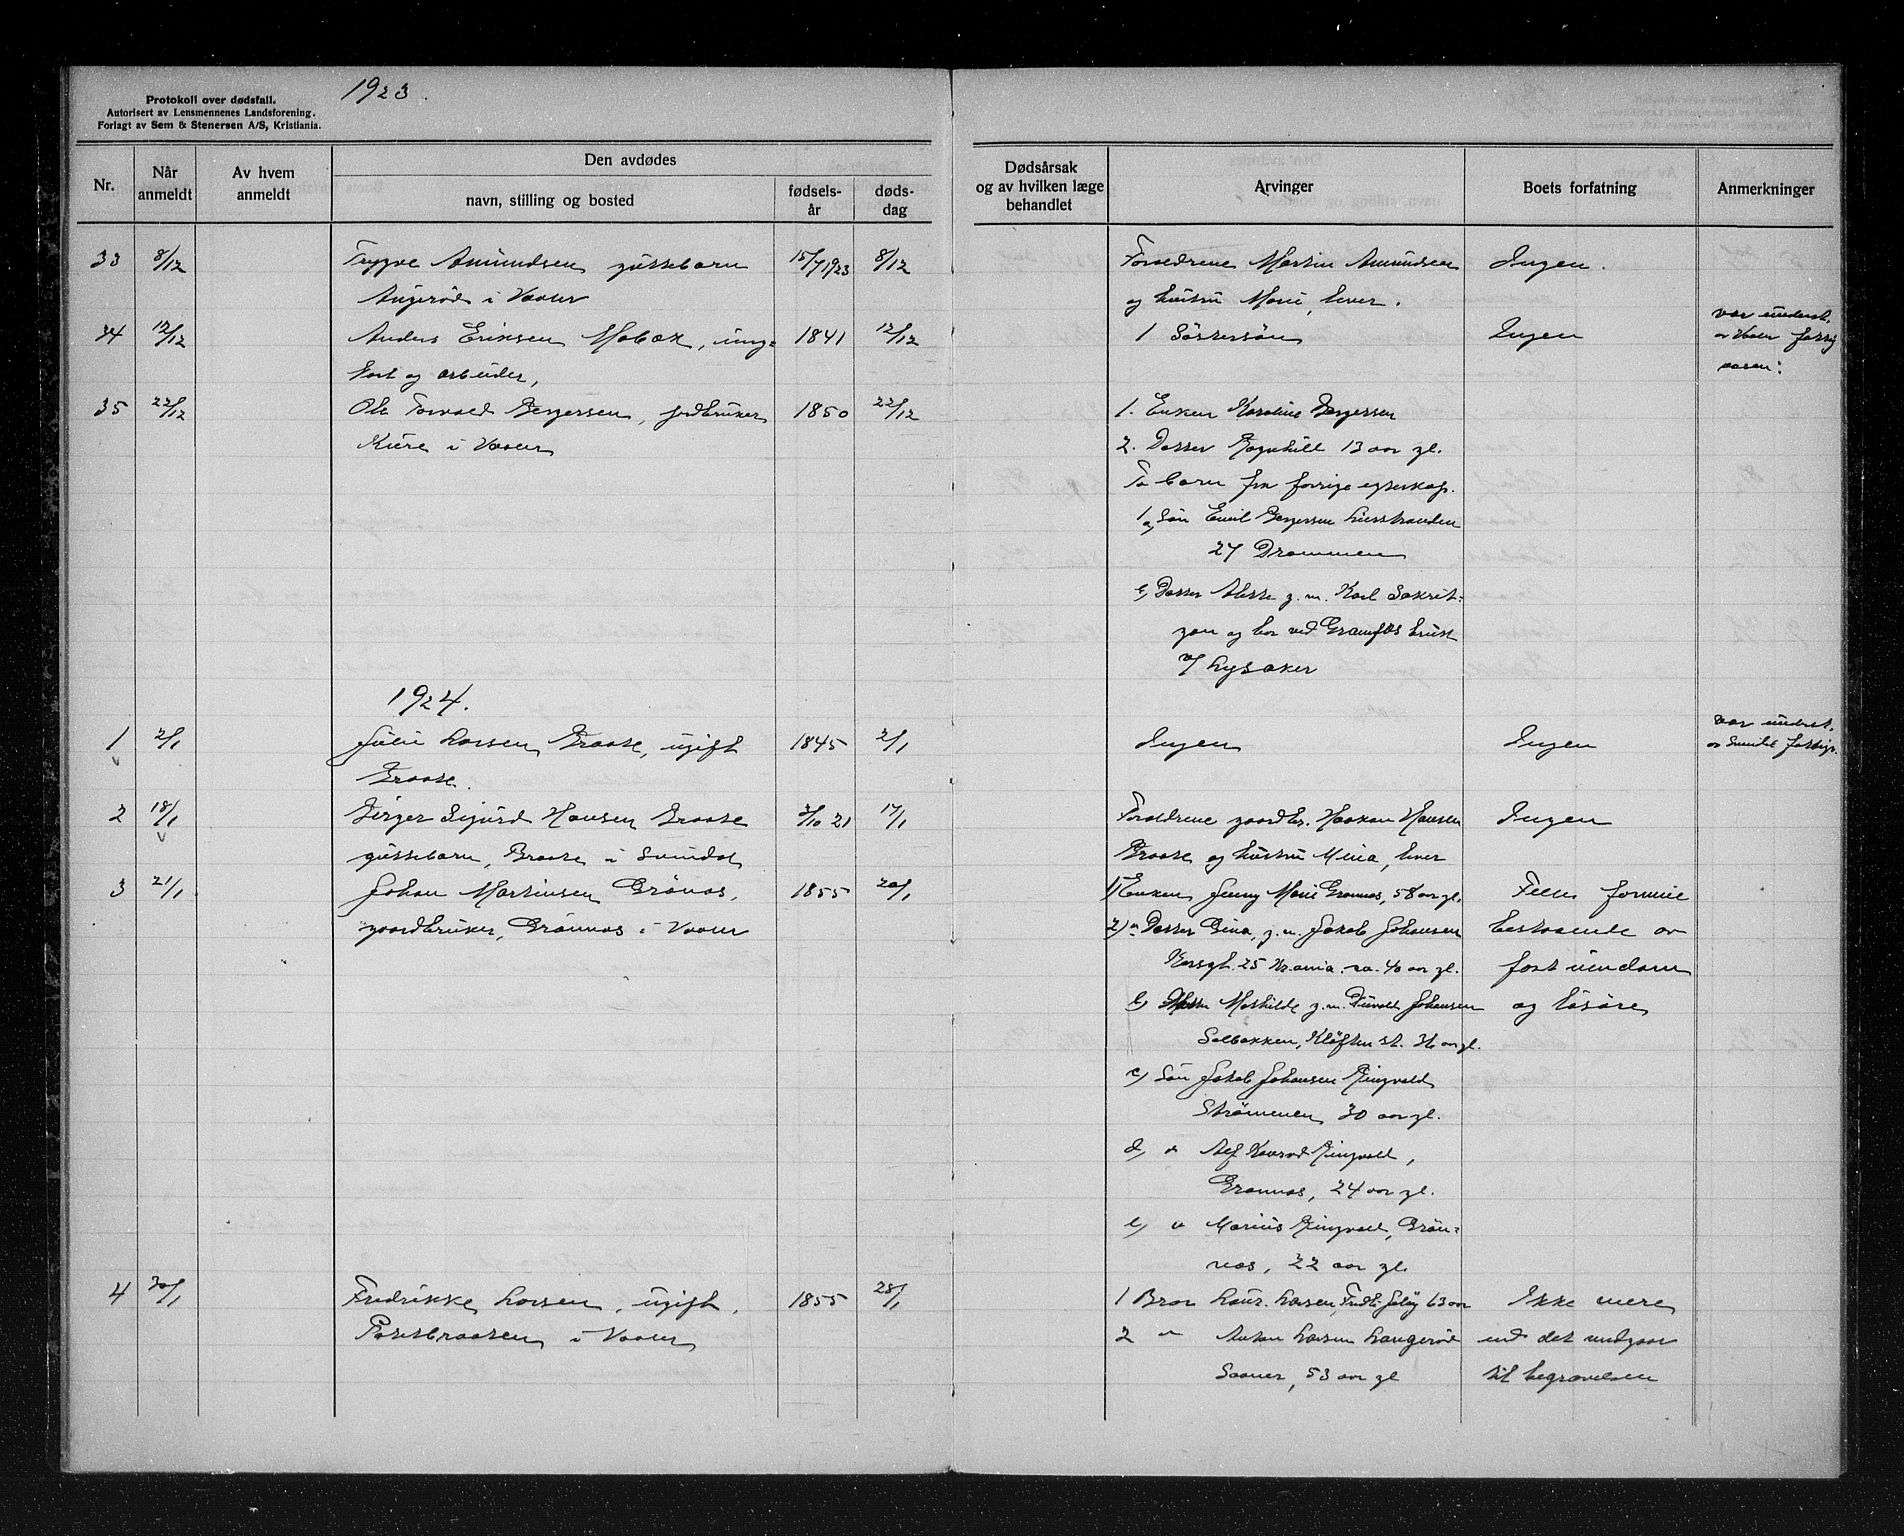 Protokoll over dødsfall.
Autorisert av Lensmennenes Landsforening.
Forlagt av Sem & Stenersen A/S, Kristiania.
1923.
Nr.
Når anmeldt
Av hvem anmeldt
Den avdødes
navn, stilling og bosted
fødsels-år
døds-dag
Dødsårsak og av hvilken læge behandlet
Arvinger
Boets forfatning
Anmerkninger
33 8/12 Trygve Amundsen guttebarn 15/7 1923 8/12 Forældrene Martin Amundsen Ingen.
i Vaaler og hustru Marie, lever.
34 12/12 Anders Eriksen Mobæk, ung- 1841 12/12 1 Søstersøn Ingen var underst.
karl og arbeider, av Vaaler fattig
væsen.
35 22/12 Ole Torvald Bergersen, jordbruker 1850 22/12 1. Enken Karoline Bergersen
Kure i Vaaler 2. Datter Ragnhild 13 aar gl.
To barn fra forrige egteskap.
a, Søn Emil Bergersen
27 Drammen
b, Datter g. m. Karl
og bor ved Granfos bruk
v/ Lysaker
1924.
1 2/1 Julie Larsen Braate, ugift 1845 2/1 Ingen Ingen var underst.
Braate. av fattigv.
2 18/1 Birger Sigurd Hansen Braate 3/10 21 17/1 Forældrene gaardbr. Haakon Hansen Ingen
guttebarn, Braate i Svindal Braate og hustru Mina, lever
3 21/1 Johan Martinsen Grönnas, 1855 20/1 1) Enken Jenny Marie Grönnas, 58 aar gl. Fælles formue
gaardbruker, Grönnas i Vaaler 2) a Datter Gina, g. m. Jakob Johansen bestaaende av
25 Kr.ania. ca. 40 aar gl. fast eiendom
b) Mathilde g. m. Johansen og løsøre
Solbakken, Kløften st. 36 aar gl.
c) Søn Jakob Johansen Ringvold
Strömmen 30 aar gl.
d, " Alf Konrad Ringvold,
Grönnas, 24 aar gl.
e, " Marius Ringvold, Grön-
nas, 22 aar gl.
4 30/1 Fredrikke Larsen, ugift, 1855 28/1 1 Bror Laur. Larsen, Jeløy 63 aar Ikke mere
i Vaaler 2 " Anton Larsen Langerød end det medgaar
Saaner, 53 aar gl til begravelsen